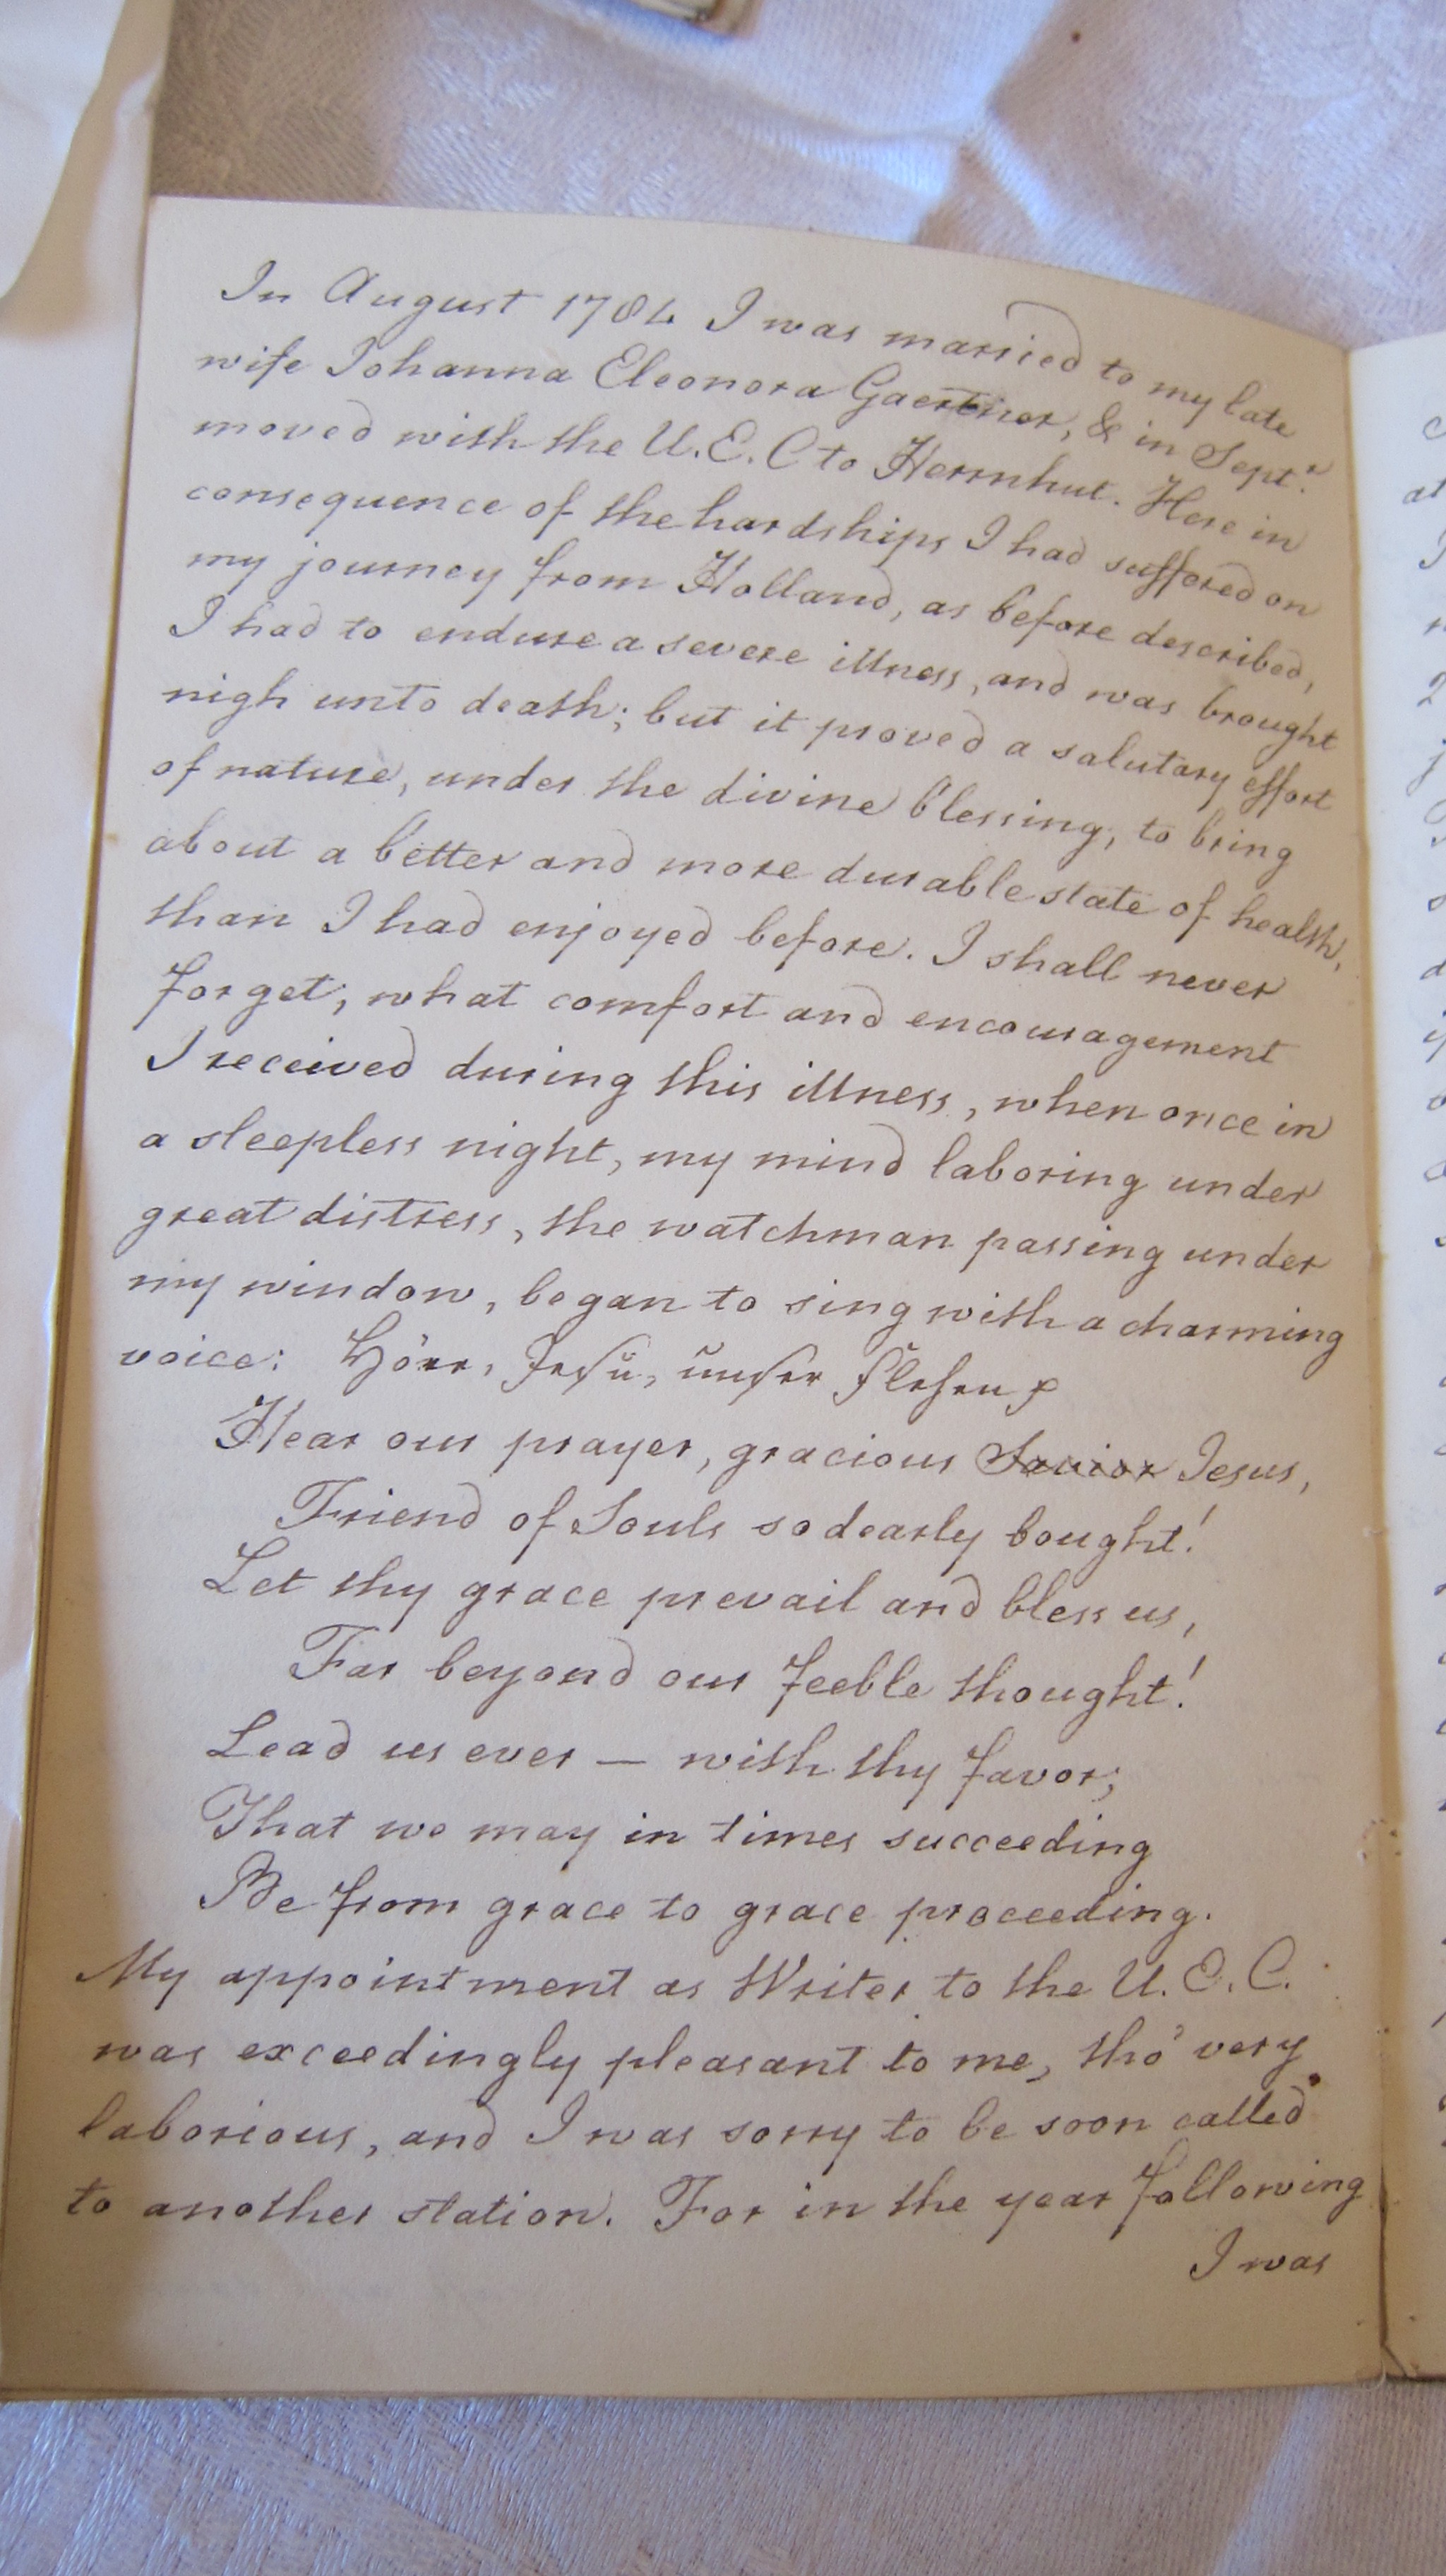 In August 1784 I was married to my late
wife Johanna Eleonora Gaertner, & in Sept.r
moved with the U.E.C to Herrnhut. Here in
consequence of the hardships I had suffered on
my journey from Holland, as before described,
I had to endure a severe illness, and was brought
nigh unto death; but it proved a salutary effort
of nature, under the divine blessing, to bring
about a better and more durable state of health,
than I had enjoyed before. I shall never
forget, what comfort and encouragement
I received during this illness, when once in
a sleepless night, my mind laboring under
great distress, the watchman passing under
my window, began to sing with a charming
voice: Höre, Jesu, unser Flehen
Hear our prayer, gracious Savior Jesus,
Friend of Souls so dearly bought!
Let thy grace prevail and bless us,
Far beyond our feeble thought!
Lead us ever — with thy favor;
That we may in times succeeding
Be from grace to grace proceeding.
My appointment as Writer to the U.E.C.
was exceedingly pleasant to me, tho' very
laborious, and I was sorry to be soon called
to another station. For in the year following
I was